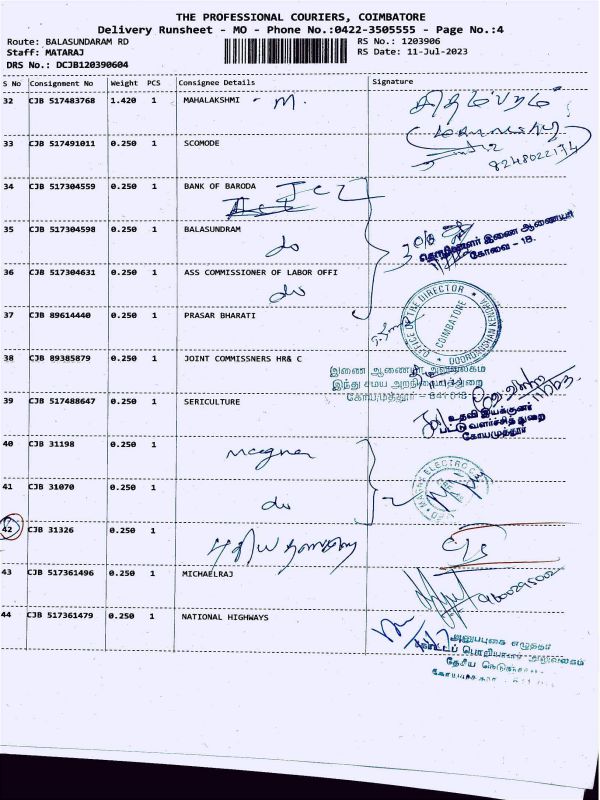 THE PROFESSIONAL COURIERS, COIMBATORE
Delivery Runsheet - MO - Phone No.:0422-3505555 - Page No.:4
Route: BALASUNDARAM RD RS No.: 1203906
Staff: MATARAJ RS Date: 11-Jul-2023
DRS No.: DCJB120390604
S No Consignment No Weight PCS Consignee Details Signature
32 CJB 517483768 1.420 1 MAHALAKSHMI - M. சிதம்பரம்
8248022174
33 CJB 517491011 0.250 1 SCOMODE
34 CJB 517304559 0.250 1 BANK OF BARODA
35 CJB 517304598 0.250 1 BALASUNDRAM do
இணை ஆணையர்
கோவை - 18.
36 CJB 517304631 0.250 1 ASS COMMISSIONER OF LABOR OFFI do
37 CJB 89614440 0.250 1 PRASAR BHARATI
OFFICE OF THE DIRECTOR
COIMBATORE
38 CJB 89385879 0.250 1 JOINT COMMISSNERS HR& C
இணை ஆணையர் அலுவலகம்
இந்து சமய அறநிலையத்துறை
கோயமுத்தூர் - 641018
39 CJB 517488647 0.250 1 SERICULTURE
உதவி இயக்குனர்
பட்டு வளர்ச்சித் துறை
கோயமுத்தூர்
40 CJB 31198 0.250 1 magna
MAGNA ELECTRO
41 CJB 31070 0.250 1 do
42 CJB 31326 0.250 1
43 CJB 517361496 0.250 1 MICHAELRAJ
44 CJB 517361479 0.250 1 NATIONAL HIGHWAYS
அலுவலகம்
தேசிய